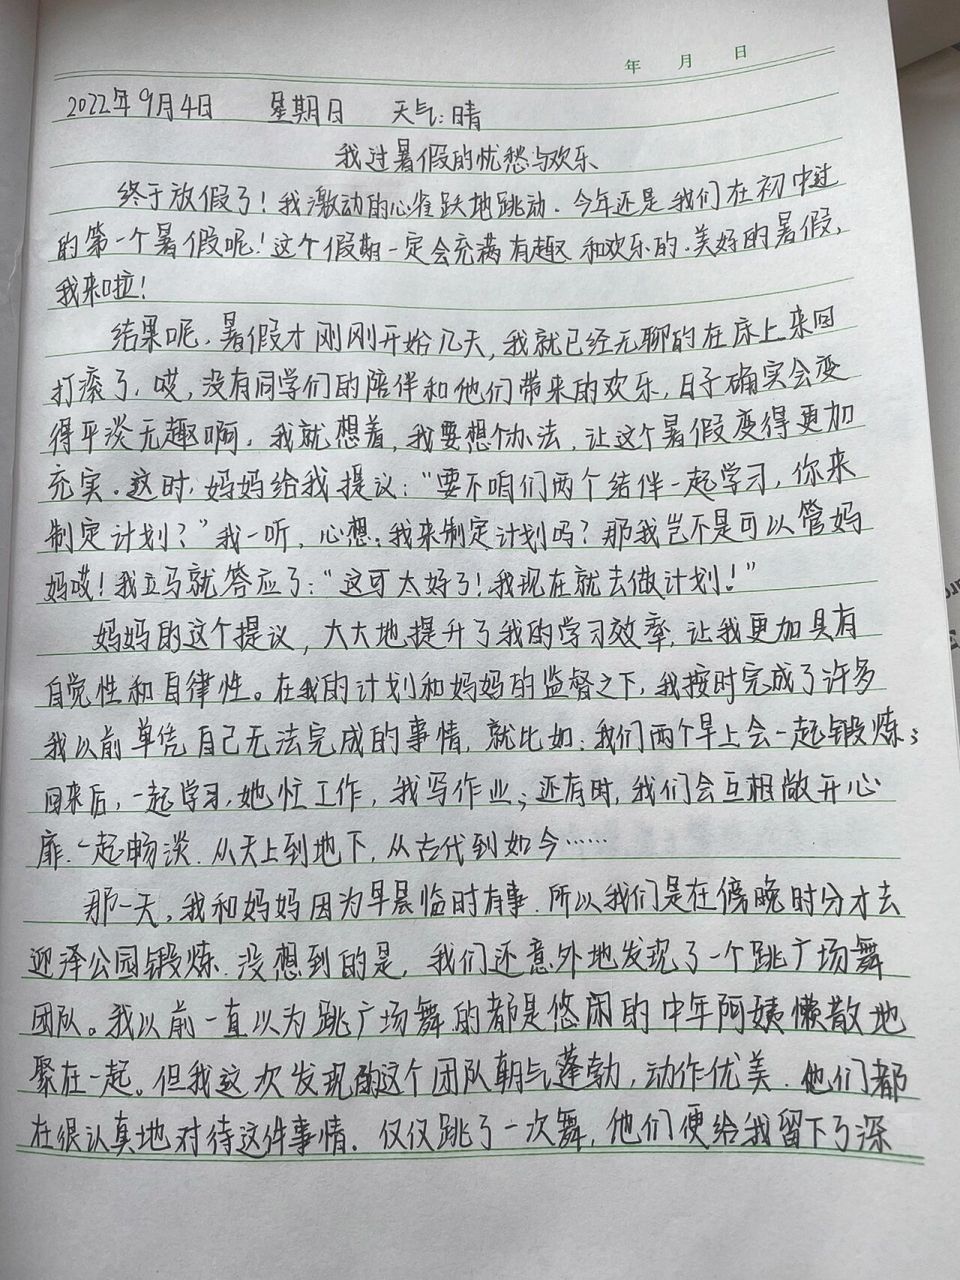 年 月 日
2022年9月4日 星期日 天气:晴
我过暑假的忧愁与欢乐
终于放假了!我激动的心雀跃地跳动。今年还是我们在初中过
的第一个暑假呢!这个假期一定会充满有趣和欢乐的。美好的暑假,
我来啦!
结果呢,暑假才刚刚开始几天,我就已经无聊的在床上来回
打滚了,哎,没有同学们的陪伴和他们带来的欢乐,日子确实会变
得平淡无趣啊。我就想着,我要想个办法,让这个暑假变得更加
充实。这时,妈妈给我提议:“要不咱们两个结伴一起学习,你来
制定计划?”我一听,心想:我来制定计划吗?那我岂不是可以管妈
妈哎!我立马就答应了:“这可太好了!我现在就去做计划!”
妈妈的这个提议,大大地提升了我的学习效率,让我更加具有
自觉性和自律性。在我的计划和妈妈的监督之下,我按时完成了许多
我以前单凭自己无法完成的事情,就比如:我们两个早上会一起锻炼;
回来后,一起学习,她忙工作,我写作业;还有时,我们会互相敞开心
扉,一起畅谈,从天上到地下,从古代到如今……
那一天,我和妈妈因为早晨临时有事,所以我们是在傍晚时分才去
迎泽公园锻炼,没想到的是,我们还意外地发现了一个跳广场舞
团队。我以前一直以为跳广场舞的都是悠闲的中年阿姨懒散地
聚在一起。但我这次发现的这个团队朝气蓬勃,动作优美,他们都
在很认真地对待这件事情。仅仅跳了一次舞,他们便给我留下了深